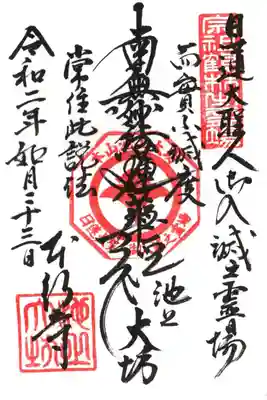 日蓮大聖人御入滅之霊場
而實不滅度
南無妙法蓮華経
池上
大坊
常住此説法
本行寺
令和二年如月二十三日